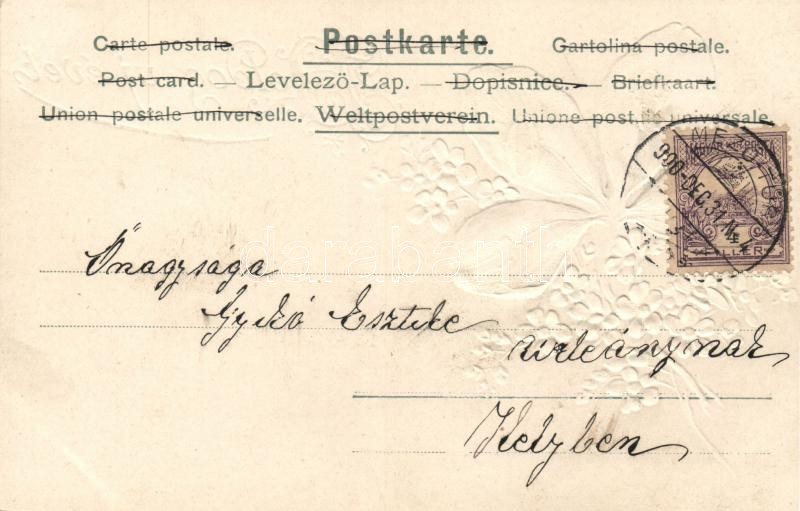 Carte postale. Postkarte. Gartolina postale.
Post card. — Levelező-Lap. — Dopisnice. — Briefkaart.
Union postale universelle. Weltpostverein. Unione postale universale.
MEZŐTÚR
900 DEC. 31. N. 4
MAGYAR KIR. POSTA
Őnagysága
Gyikó Esztike
urleánynak
Helyben